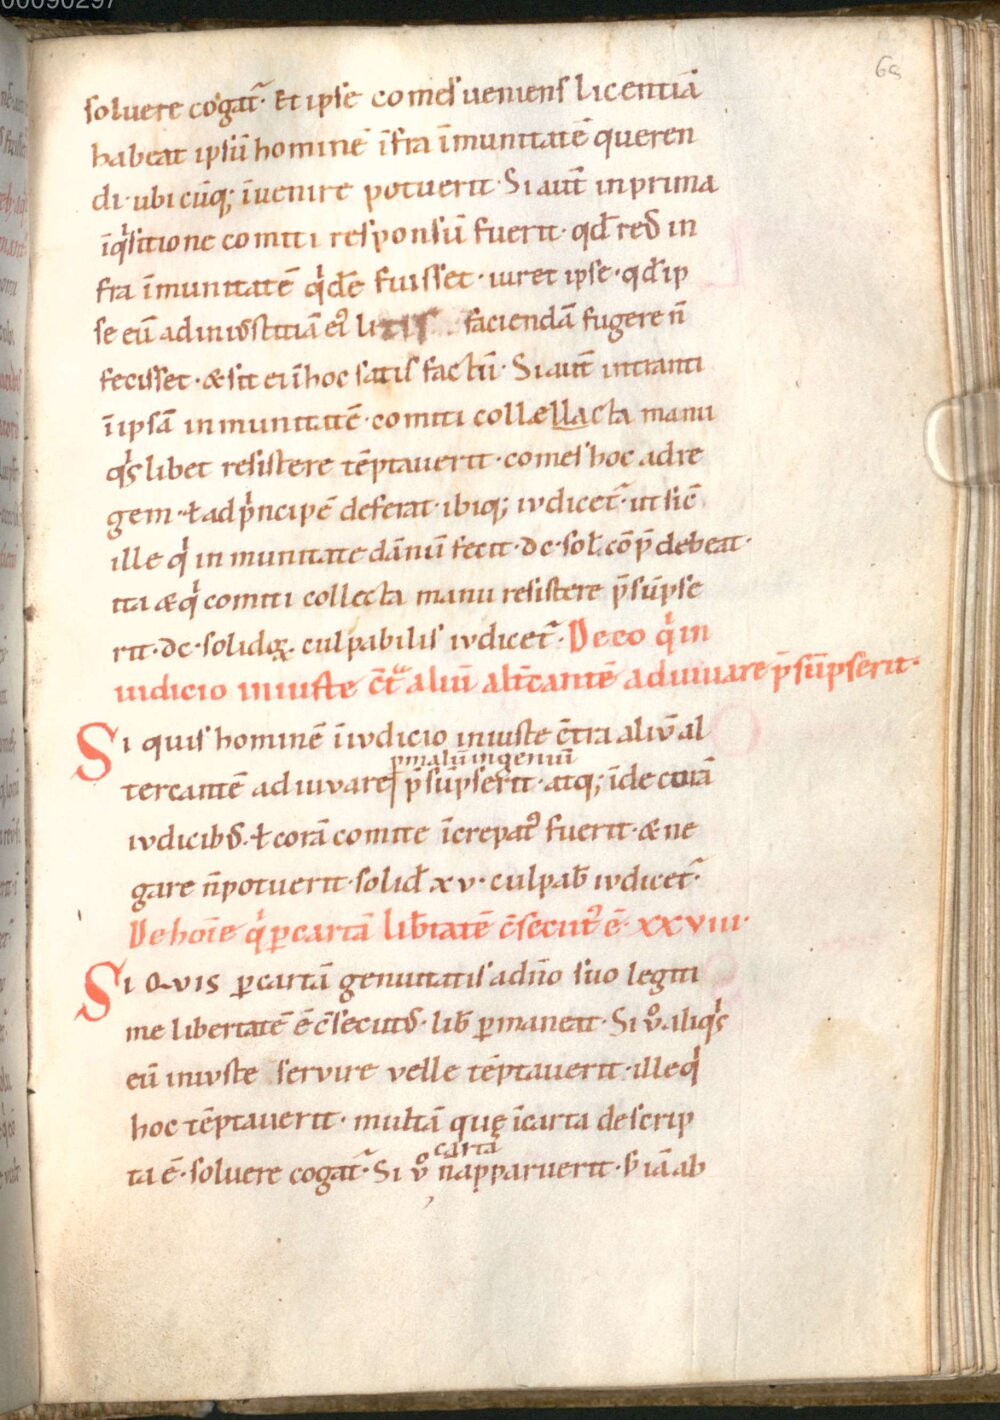 00090297
68
soluere cogat᷑· Et ipse comes ueniens licentiā
habeat ipsū hominē īfra īmunitatē queren
di· ubi cūq; īuenire potuerit· Si aut̄ in prima
īqͥsitione comiti responsū fuerit· qđ reꝰ in
fra īmunitatē qͥdē fuisset· iuret ipse· qđ ip
se eū ad iniusticiā eiꝰ faciendā fugere n̄
fecisset· & sit ei ī hoc satis factū· Si aut̄ intranti
ī ipsā inmunitatē· comiti collællacta manu
qͥslibet resistere tēptauerit· comes hoc ad re
gem· ł ad pͥncipē deferat· ibiq; iudicet᷑· ut sic̄
ille qͥ inmunitate dānū fecit· dc· sol̄· cōp̄ debeat·
ita & qͥ comiti collecta manu resistere p̄sūpse
rit· dc· solidoꝝ· culpabilis iudicet᷑· De eo qͥ in
iudicio iniuste c̄tͣ aliū alt̄cantē adiuuare p̄sūpserit·
Si quis hominē ī iudicio iniuste c̄tra aliū al
p malū ingeniū
tercantē adiuuare p̄sūpserit· atq; īde corā
iudicibꝰ· ł corā comite īcrepatꝰ fuerit· & ne
gare n̄ potuerit· solid̄ xv· culpab̄ iudicet᷑·
De hōīe qͥ ꝑ cartā lib̄tatē c̄secutꝰ ē· xxviii·
Si Qvis ꝑ cartā genuitatis a dn̄o suo legiti
me libertatē ē c̄secutꝰ· lib̄ ꝑmaneat· Si ūo aliqͥs
eū iniuste servire velle tēptauerit· ille qͥ
hoc tēptauerit· multā quę ī carta descrip
ta ē· soluere cogat᷑· Si ūo n̄ apparuerit· s̄ iā ab
carta